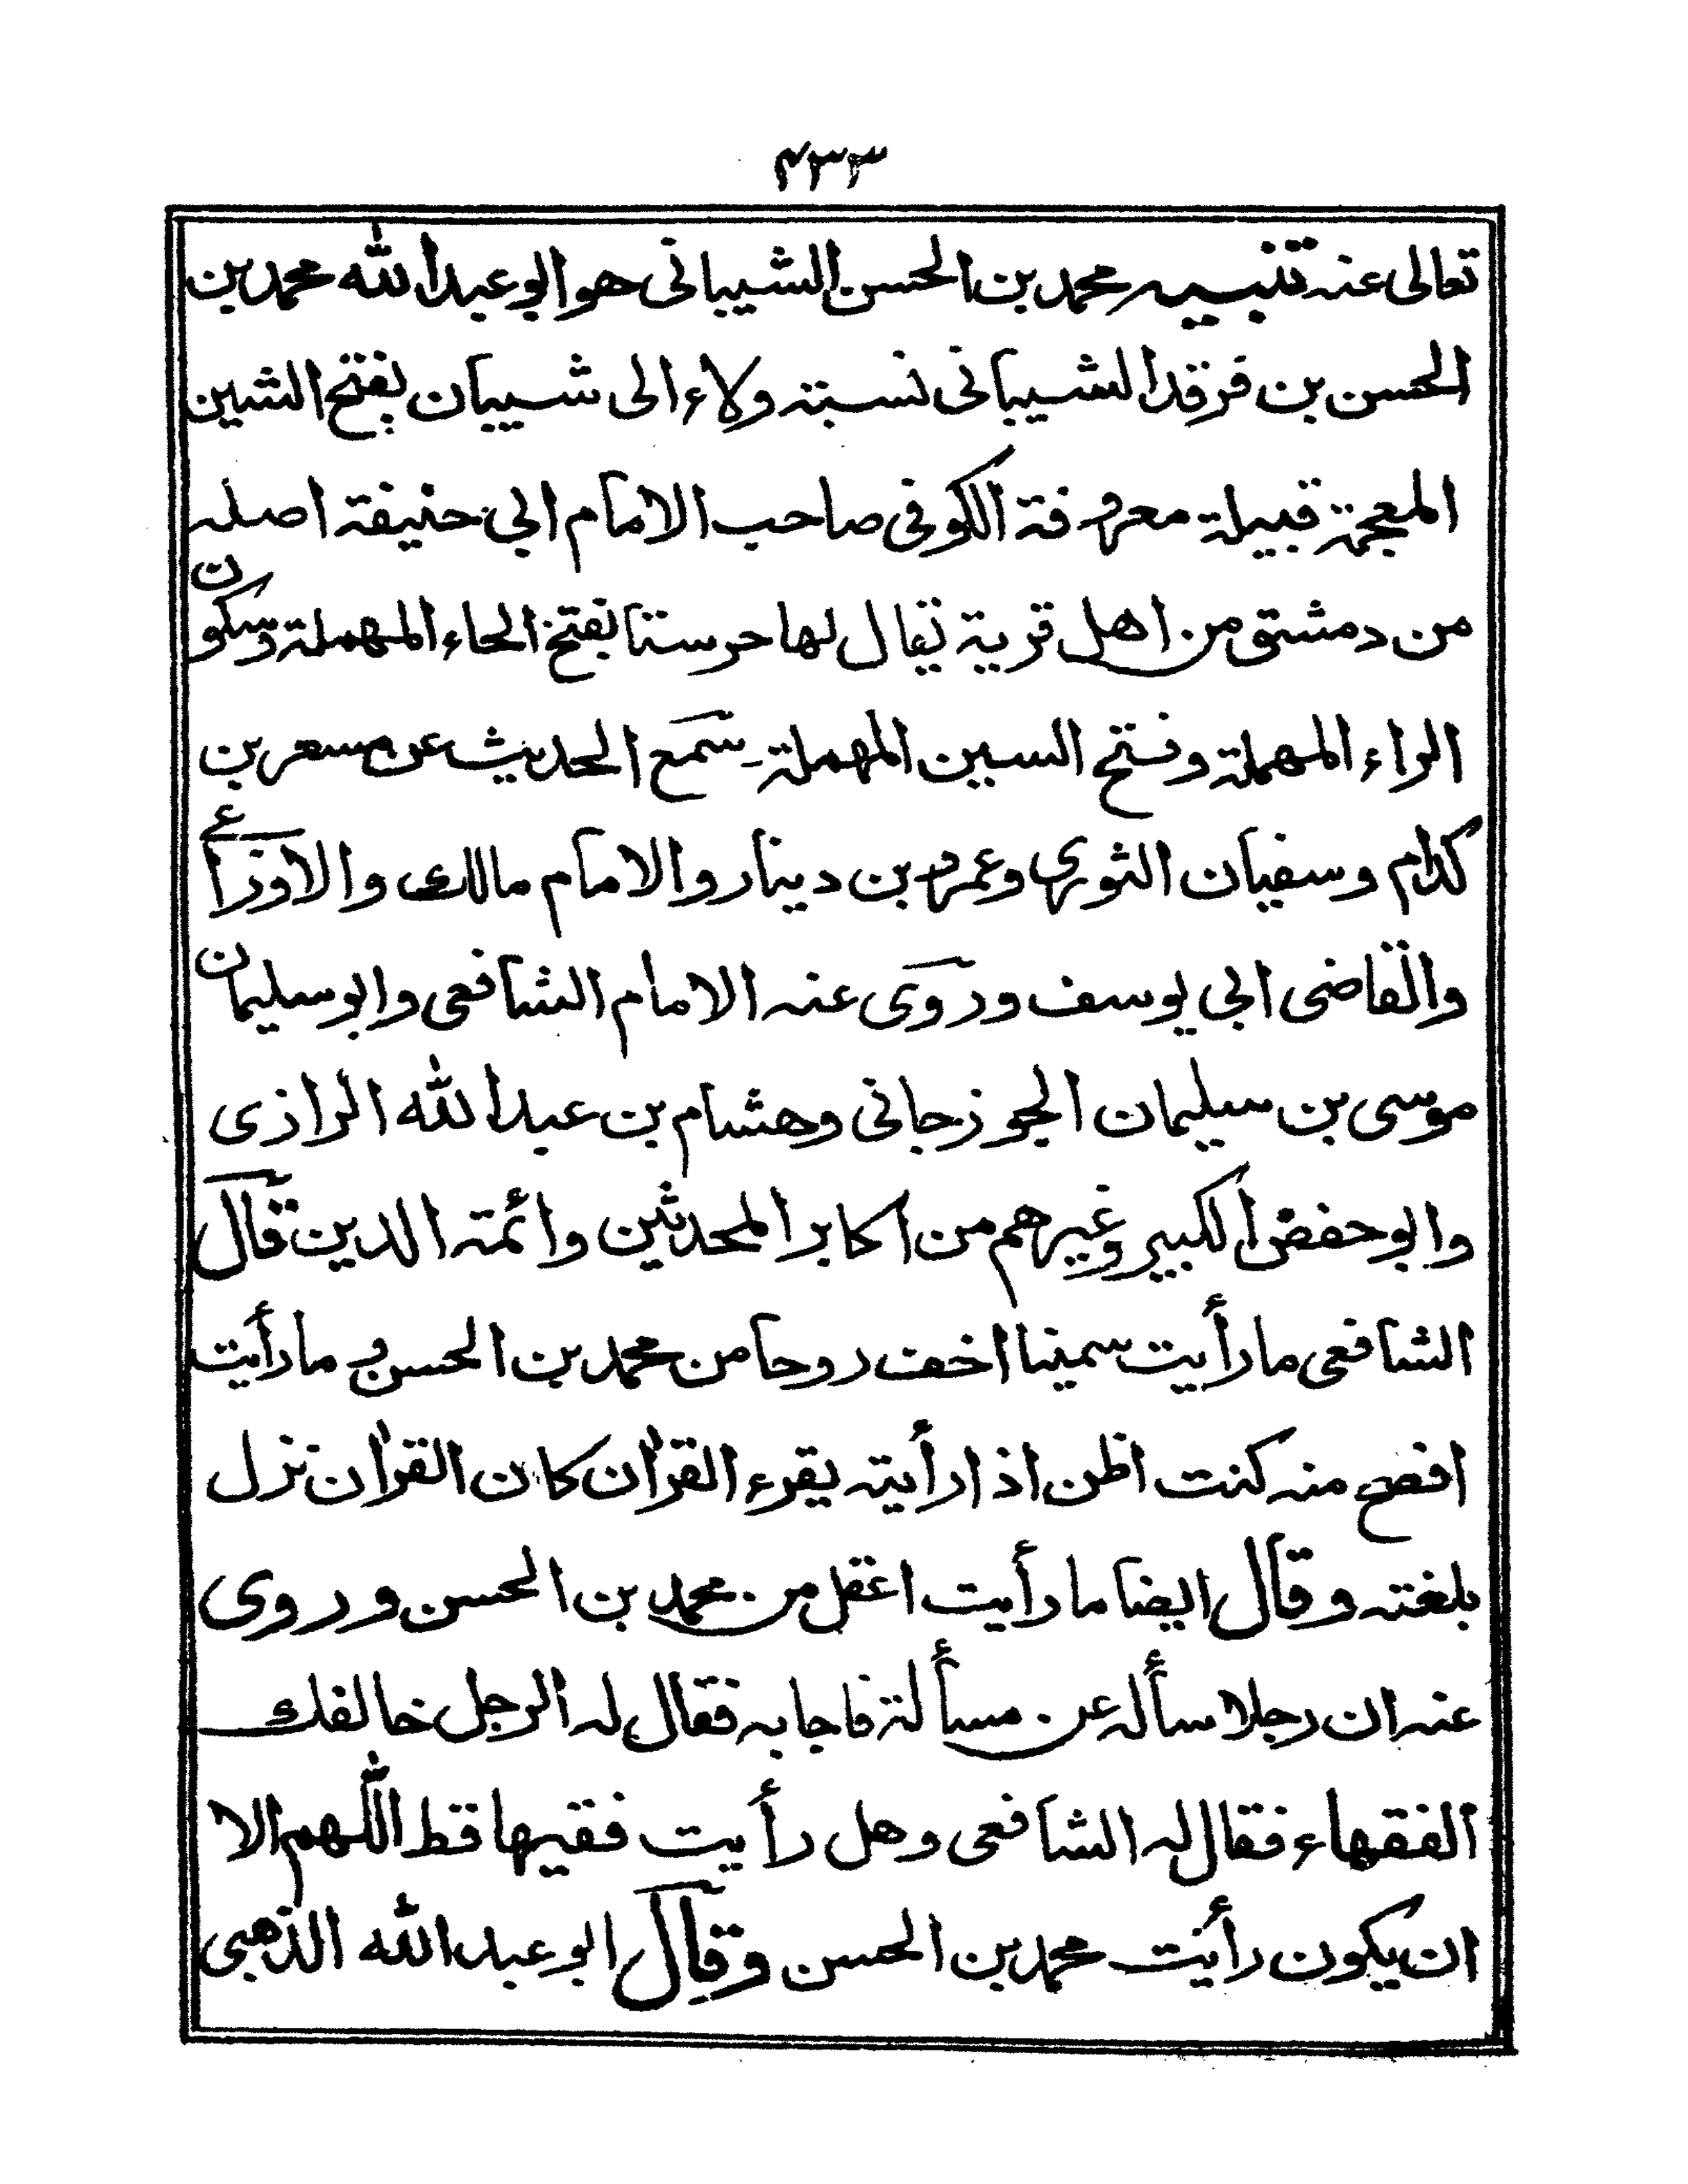 ۴۳۳
تعالى عنه تنبيه محمد بن الحسن الشيبانى هو ابو عبد الله محمد بن
الحسن بن فرقد الشيبانى نسبته ولاء الى شيبان بفتح الشين
المعجمة قبيلة معروفة الكوفى صاحب الامام ابي حنيفة اصله
من دمشق من اهل قرية يقال لها حرستا بفتح الحاء المهملة وسكون
الراء المهملة وفتح السين المهملة سمع الحديث عن مسعر بن
كدام وسفيان الثوري وعمرو بن دينار والامام مالك والاوزاعے
والقاضى ابي يوسف وروى عنه الامام الشافعى وابو سليمان
موسى بن سليمان الجوزجانى وهشام بن عبد الله الرازى
وابو حفص الكبير وغيرهم من اكابر المحدثين وائمة الدين قال
الشافعى ما رأيت سمينا اخف روحا من محمد بن الحسن و ما رأيت
افصح منه كنت اظن اذا رأيته يقرء القرآن كان القرآن نزل
بلغته وقال ايضا ما رأيت اعقل من محمد بن الحسن وروى
عنه ان رجلا سأله عن مسألة فاجابه فقال له الرجل خالفك
الفقهاء فقال له الشافعى وهل رأيت فقيها قط اللهم الا
ان يكون رأيت محمد بن الحسن وقال ابو عبد الله الذهبى